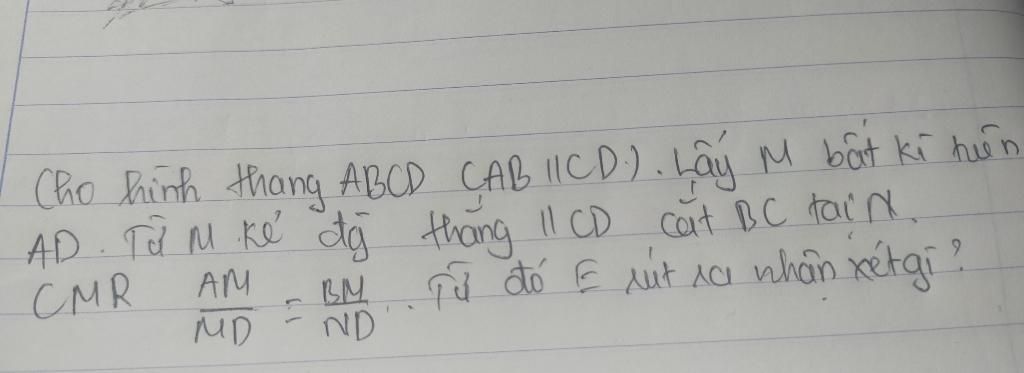 Cho hình thang ABCD (AB // CD). Lấy M bất kì trên
AD. Từ M kẻ đg thẳng // CD cắt BC tại N.
CMR AM/MD = BM/ND. Từ đó rút ra nhận xét gì?